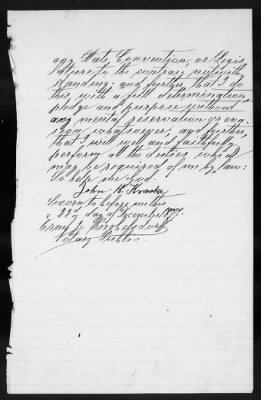 any State, Convention, or Legis
lature to the contrary notwith
standing; and further that I do
this with a full determination,
pledge and purpose without
any mental reservation or eva
sion whatsoever; and further,
that I will well and faithfully
perform all the duties which
may be required of me by law:
So help me God.
John H.
Sworn to before me this
22d day of December
Ernest
Notary Public.